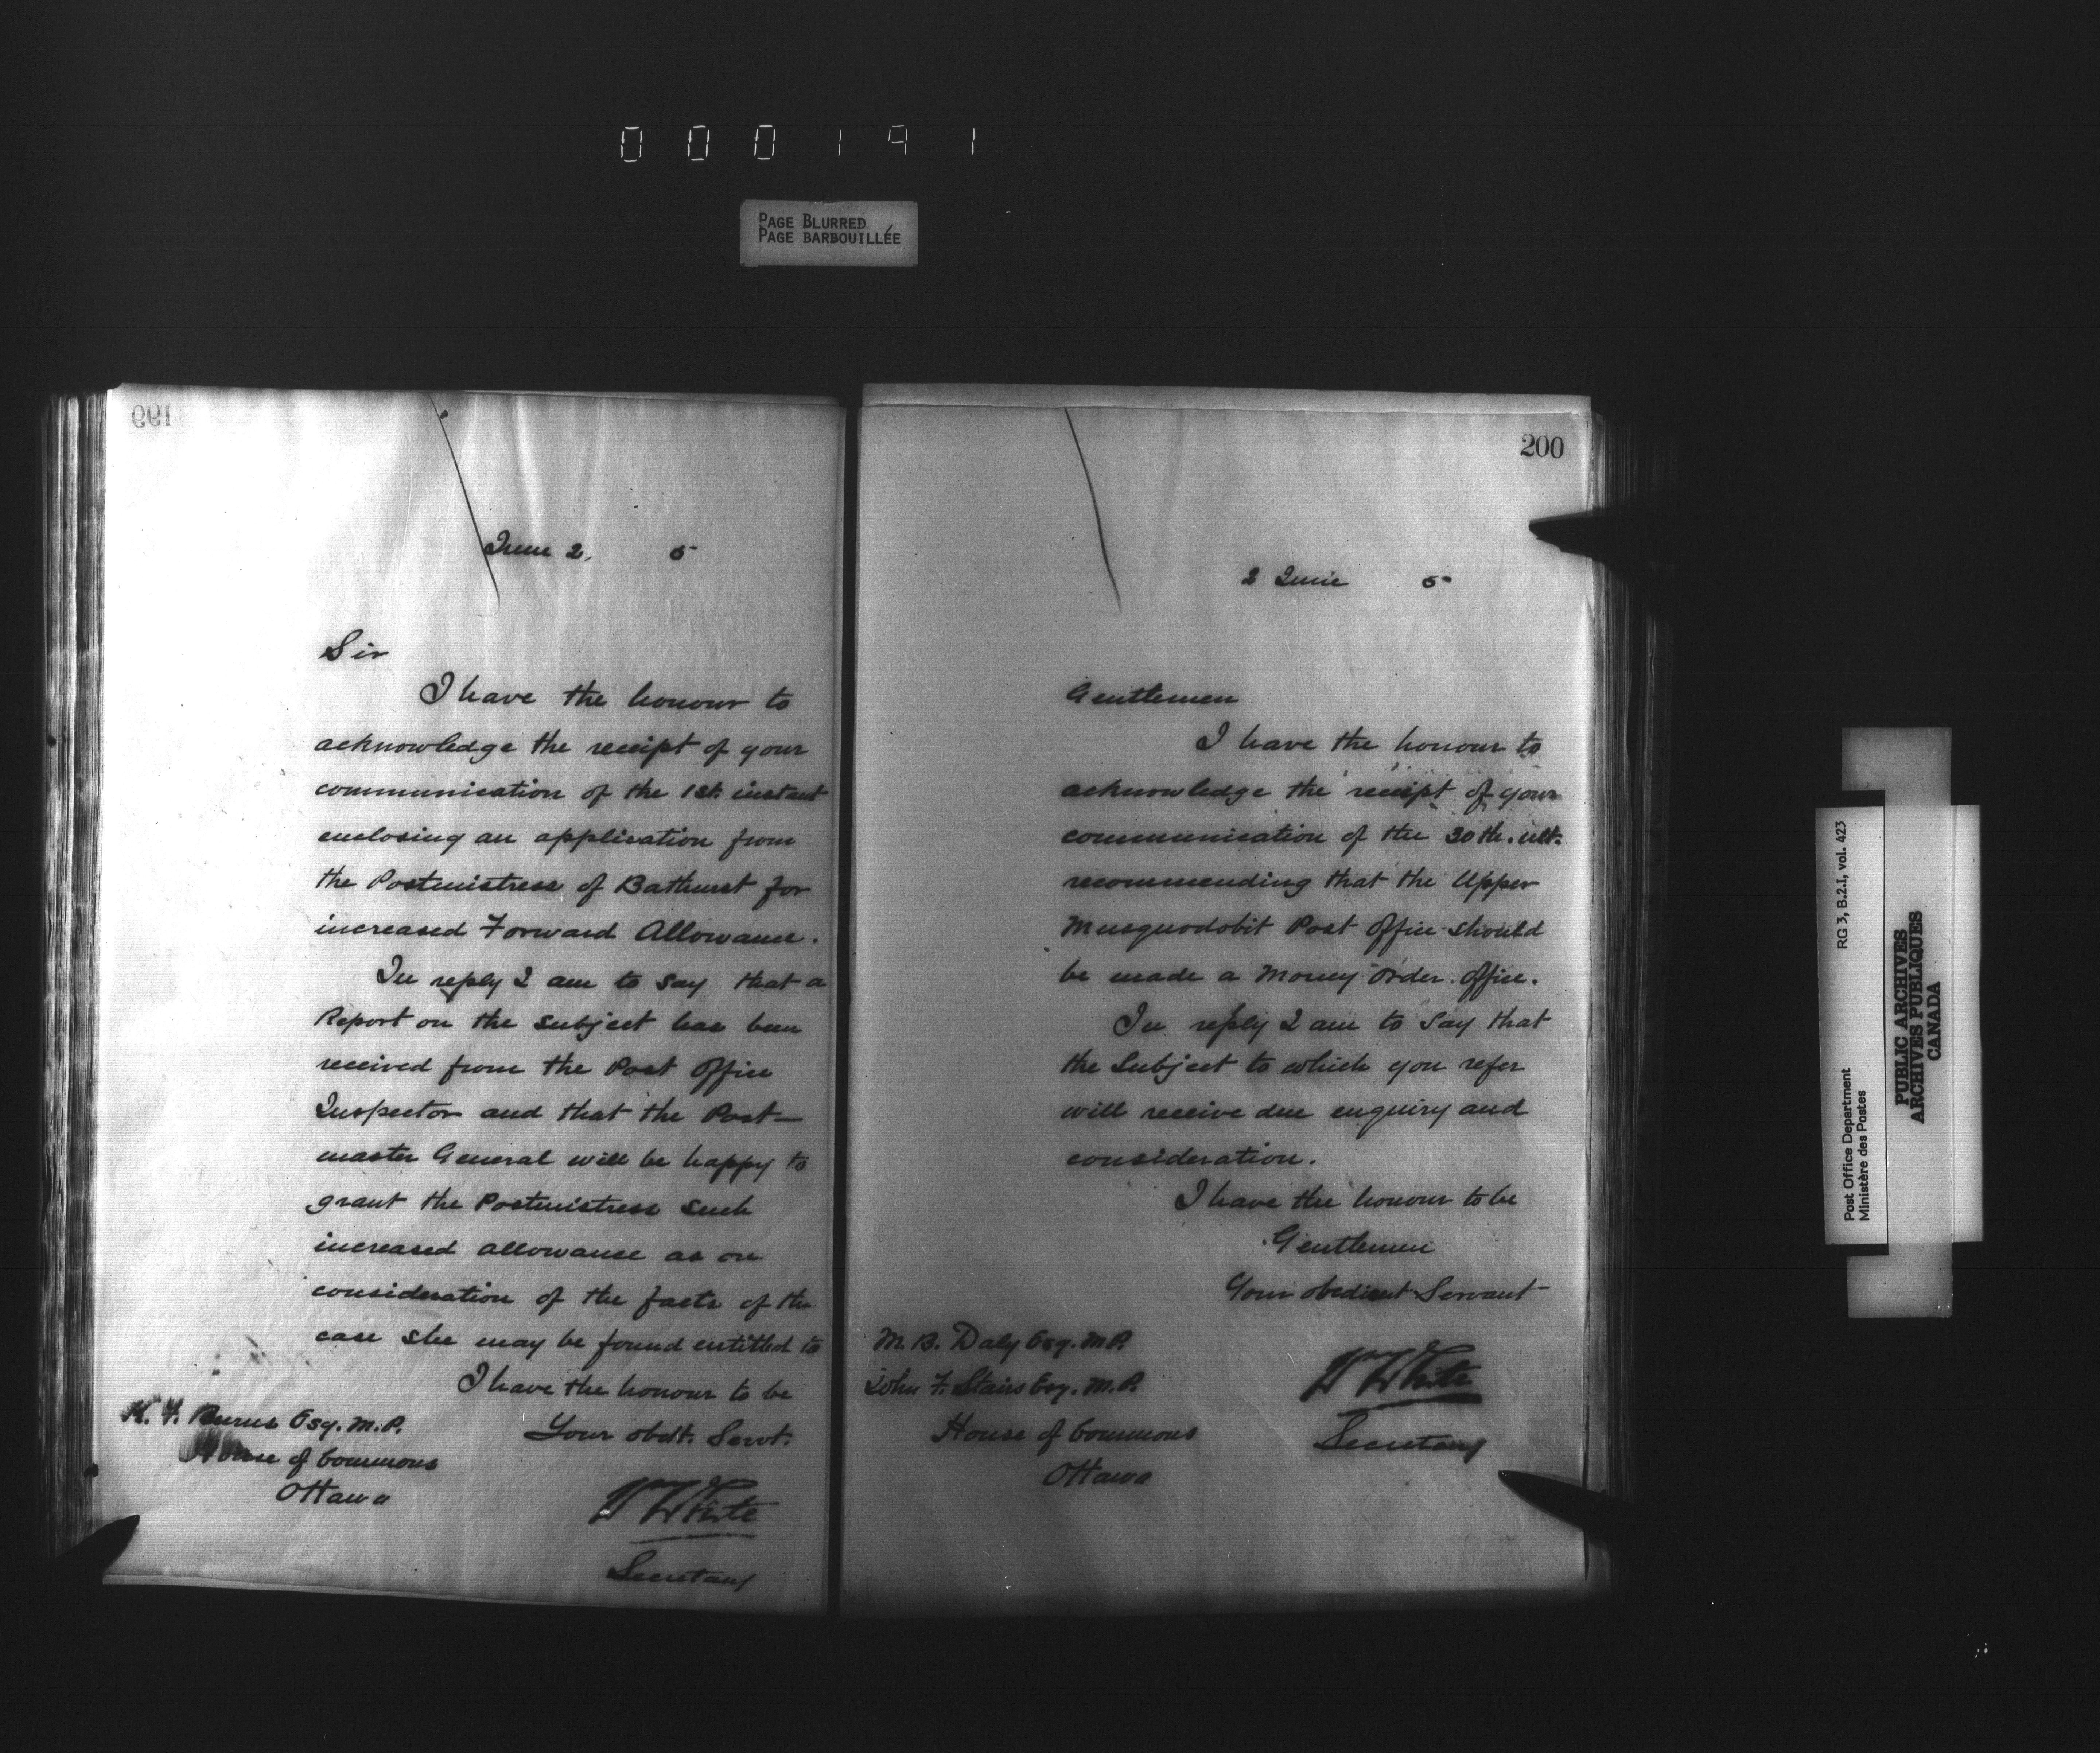 000191
PAGE BLURRED
PAGE BARBOUILLÉE
199
June 2, 5
Sir
I have the honour to
acknowledge the receipt of your
communication of the 1st. instant
enclosing an application from
the Postmistress of Bathurst for
increased Forward Allowance.
In reply I am to say that a
Report on the subject has been
received from the Post Office
Inspector and that the Post-
master General will be happy to
grant the Postmistress such
increased allowance as on
consideration of the facts of the
case she may be found entitled to
I have the honour to be
Your obdt. Servt.
K. F. Burns Esq. M.P.
House of Commons
Ottawa
W White
Secretary
200
2 June 5
Gentlemen
I have the honour to
acknowledge the receipt of your
communication of the 30th. ult.
recommending that the Upper
Musquodobit Post Office should
be made a Money Order Office.
In reply I am to say that
the Subject to which you refer
will receive due enquiry and
consideration.
I have the honour to be
Gentlemen
Your obedient Servant
M. B. Daly Esq. M.P.
John F. Stairs Esq. M.P.
House of Commons
Ottawa
W White
Secretary
RG 3, B.2.I, vol. 423
Post Office Department
Ministère des Postes
PUBLIC ARCHIVES
ARCHIVES PUBLIQUES
CANADA